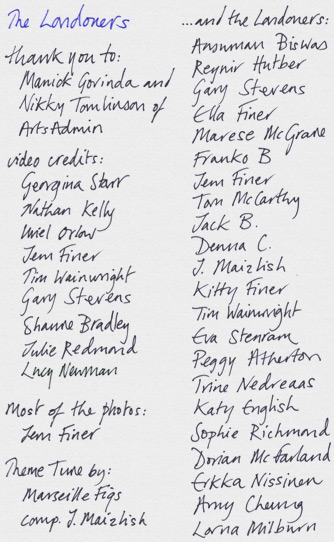 The Londoners
thank you to:
Manick Govinda and
Nikky Tomlinson of
ArtsAdmin
video credits:
Georgina Starr
Nathan Kelly
Uriel Orlow
Jem Finer
Tim Wainwright
Gary Stevens
Shaune Bradley
Julie Redmond
Lucy Newman
Most of the photos:
Jem Finer
Theme Tune by:
Marseille Figs
comp. J. Maizlish
...and the Londoners:
Ansuman Biswas
Reynir Hutber
Gary Stevens
Ella Finer
Marese McGrane
Franko B
Jem Finer
Tom McCarthy
Jack B.
Denna C.
J. Maizlish
Kitty Finer
Tim Wainwright
Eva Stenram
Peggy Atherton
Trine Nedreaas
Katy English
Sophie Richmond
Dorian McFarland
Erkka Nissinen
Amy Cheung
Lorna Milburn